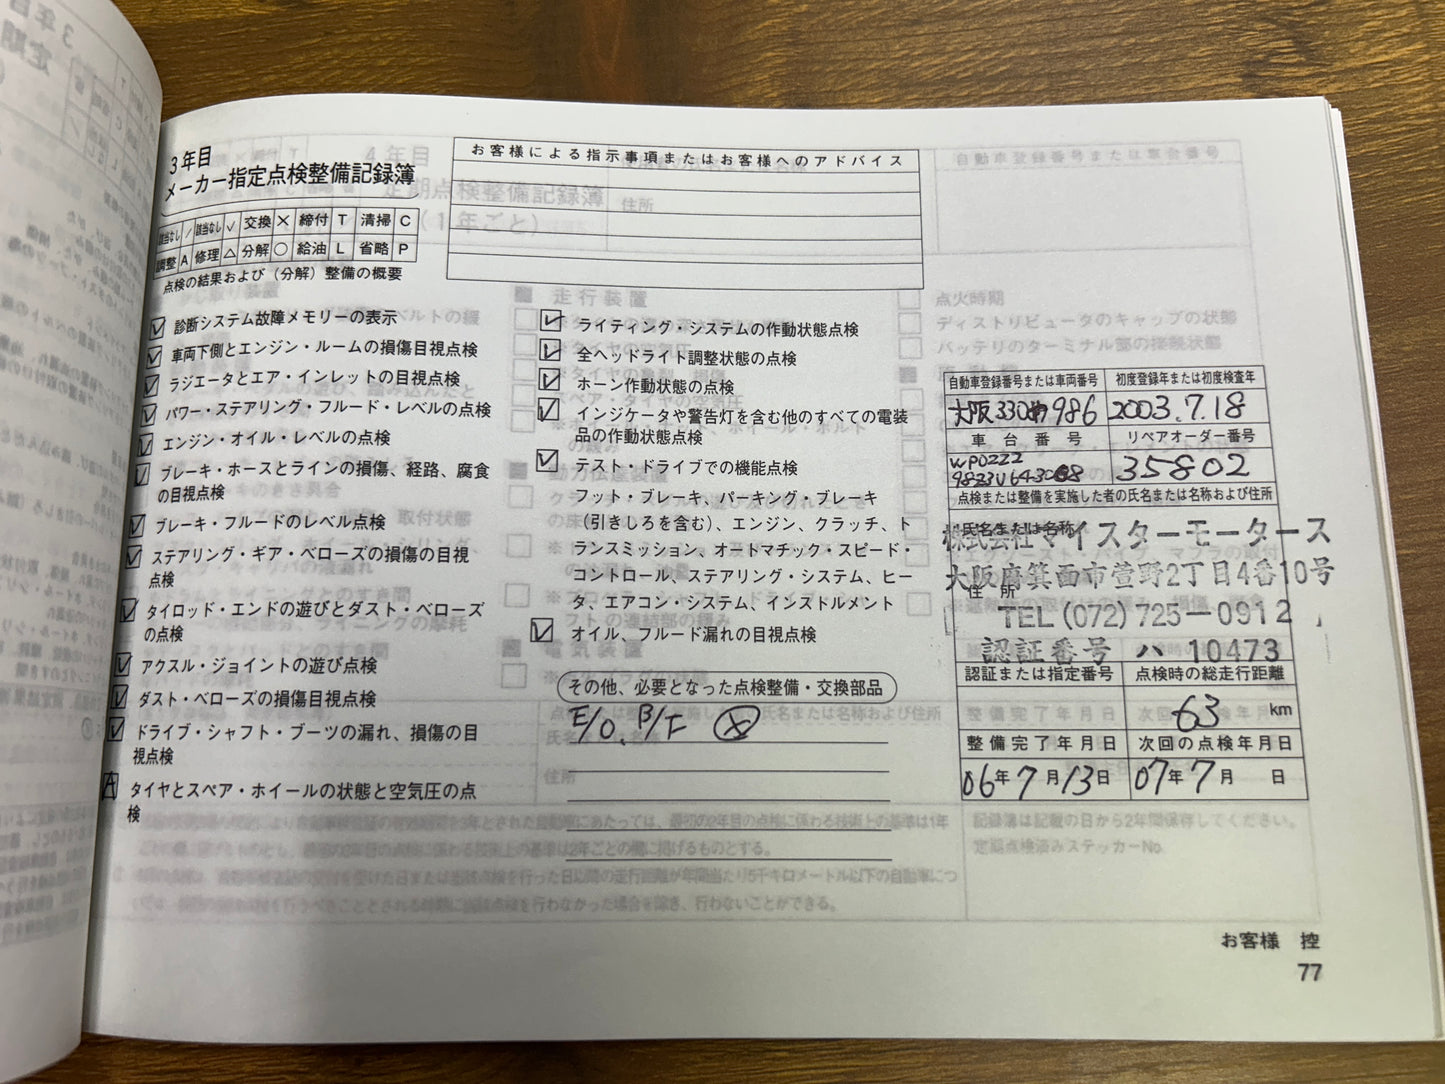 3年目
メーカー指定点検整備記録簿
該当なし / 該当なし ✓ 交換 × 締付 T 清掃 C
調整 A 修理 △ 分解 ○ 給油 L 省略 P
点検の結果および（分解）整備の概要
お客様による指示事項またはお客様へのアドバイス
診断システム故障メモリーの表示
車両下側とエンジン・ルームの損傷目視点検
ラジエータとエア・インレットの目視点検
パワー・ステアリング・フルード・レベルの点検
エンジン・オイル・レベルの点検
ブレーキ・ホースとラインの損傷、経路、腐食
の目視点検
ブレーキ・フルードのレベル点検
ステアリング・ギア・ベローズの損傷の目視
点検
タイロッド・エンドの遊びとダスト・ベローズ
の点検
アクスル・ジョイントの遊び点検
ダスト・ベローズの損傷目視点検
ドライブ・シャフト・ブーツの漏れ、損傷の目
視点検
A タイヤとスペア・ホイールの状態と空気圧の点
検
ライティング・システムの作動状態点検
全ヘッドライト調整状態の点検
ホーン作動状態の点検
インジケータや警告灯を含む他のすべての電装
品の作動状態点検
テスト・ドライブでの機能点検
フット・ブレーキ、パーキング・ブレーキ
（引きしろを含む）、エンジン、クラッチ、ト
ランスミッション、オートマチック・スピード・
コントロール、ステアリング・システム、ヒー
タ、エアコン・システム、インストルメント
オイル、フルード漏れの目視点検
その他、必要となった点検整備・交換部品
E/O. B/F ⊗
自動車登録番号または車両番号 初度登録年または初度検査年
大阪 330 986 2003.7.18
車台番号 リペアオーダー番号
WP0ZZZ 35802
点検または整備を実施した者の氏名または名称および住所
氏名または名称
株式会社マイスターモータース
大阪府箕面市萱野2丁目4番10号
住所
TEL(072)725-0912
認証番号 ハ 10473
認証または指定番号 点検時の総走行距離
63 km
整備完了年月日 次回の点検年月日
06年7月13日 07年7月 日
4年目
定期点検整備記録簿
（1年ごと）
住所
自動車登録番号または車台番号
走行装置
点火時期
ディストリビュータのキャップの状態
バッテリのターミナル部の接続状態
電気装置
記録簿は記載の日から2年間保存してください。
定期点検済みステッカーNo.
お客様 控
77